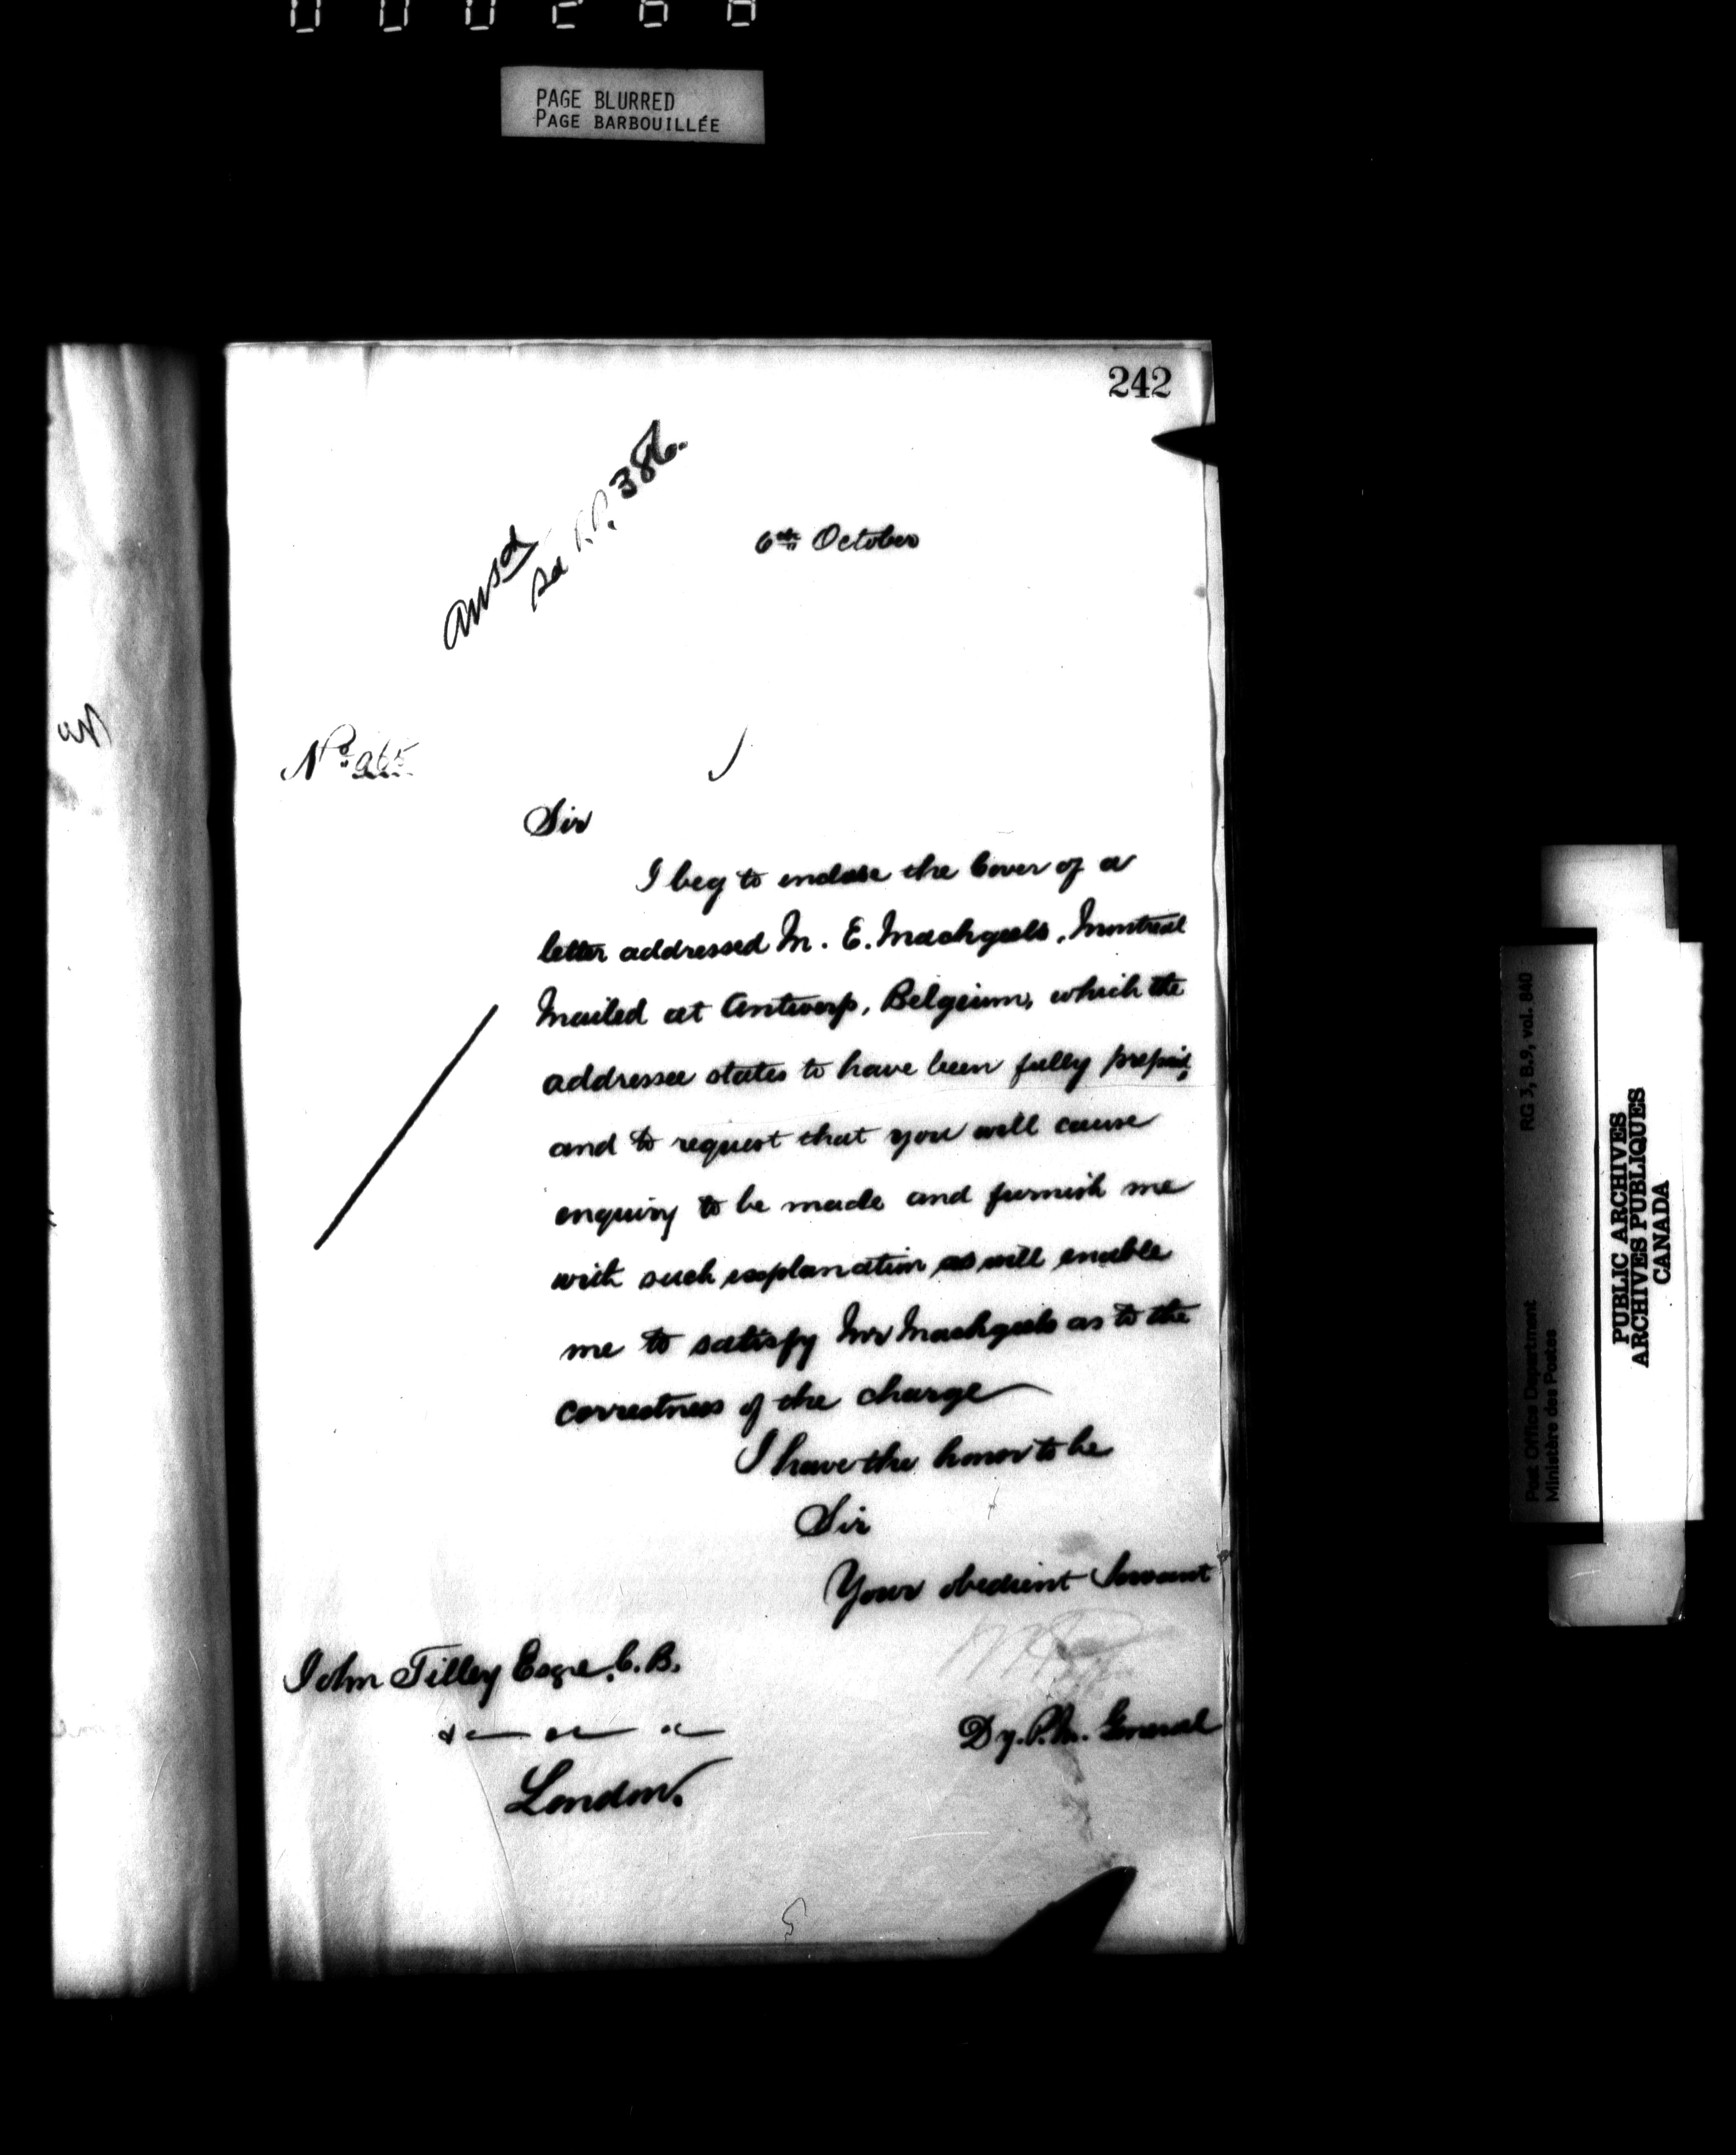 PAGE BLURRED
PAGE BARBOUILLÉE
242
Ansd
386.
6th October
No 265
Sir
I beg to enclose the Cover of a
letter addressed M. E. Machgeels, Montreal
Mailed at Antwerp, Belgium, which the
addressee states to have been fully prepaid,
and to request that you will cause
enquiry to be made and furnish me
with such explanation as will enable
me to satisfy Mr Machgeels as to the
correctness of the charge
I have the honor to be
Sir
Your obedient Servant
John Tilley Esqre. C.B.
&c &c &c
Dy. P.M. General
London.
Post Office Department
Ministère des Postes
RG 3, B.9, vol. 840
PUBLIC ARCHIVES
ARCHIVES PUBLIQUES
CANADA